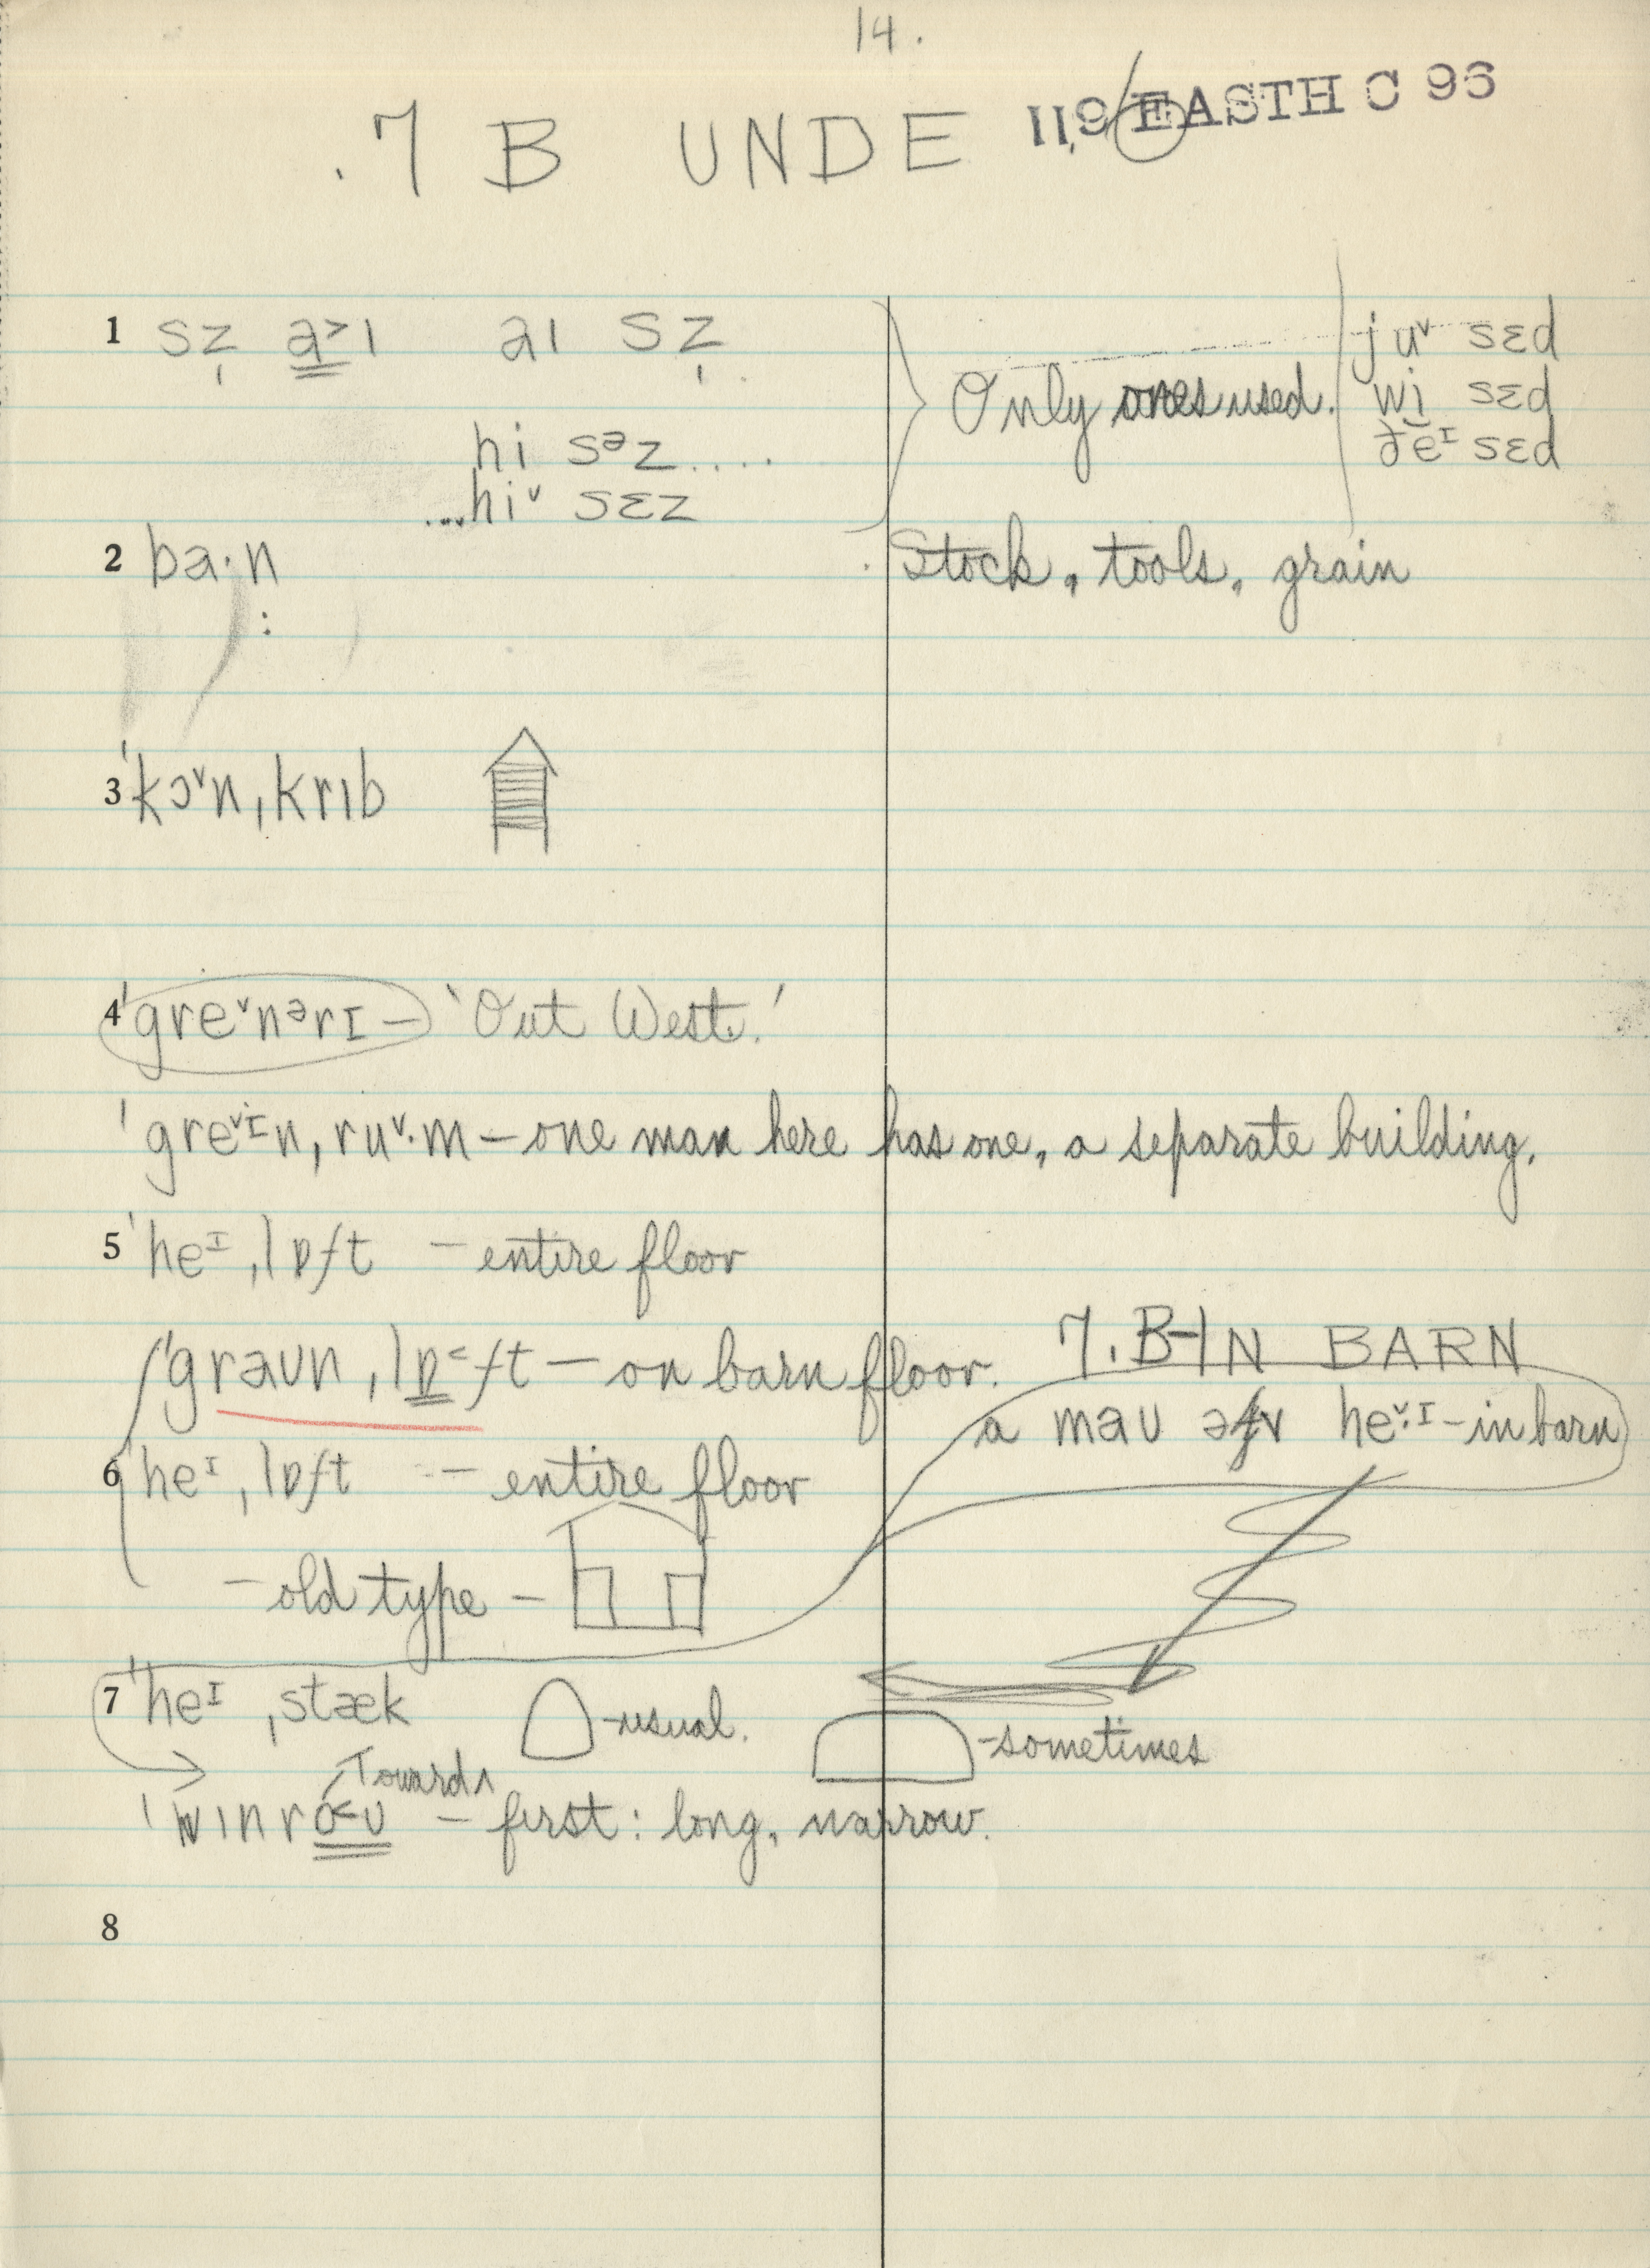 14.
.7 B UNDE 119 EASTH C 96
1 sz̩ a̳˃ɪ aɪ sz̩
Only ones used.
juᵛ sɛd
wi̬ sɛd
ðeᴵ sɛd
hi sᵊz....
...hiᵛ sɛz
2 ba·n : Stock, tools, grain
3 ˈkɔᵛnˌkrɪb
4 ˈgreᵛnᵊrɪ – 'Out West.'
ˈgreᵛᴵnˌruᵛ·m – one man here has one, a separate building.
5 ˈheᴵˌlɒft – entire floor
7. B-IN BARN
ˈgraʊnˌlɒ̳˂ft – on barn floor.
a maʊ əv heᵛ·ᴵ – in barn
6 ˈheᴵˌlɒft – entire floor
– old type –
7 ˈheᴵˌstæk – usual. – sometimes
Towards ʌ
ˈwɪnro˂ʊ – first: long, narrow.
8